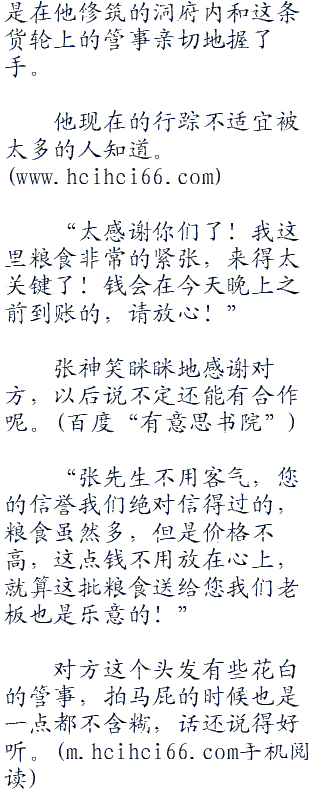 是在他修筑的洞府内和这条
货轮上的管事亲切地握了
手。
他现在的行踪不适宜被
太多的人知道。
(www.hcihci66.com)
“太感谢你们了！我这
里粮食非常的紧张，来得太
关键了！钱会在今天晚上之
前到账的，请放心！”
张神笑眯眯地感谢对
方，以后说不定还能有合作
呢。(百度“有意思书院”)
“张先生不用客气，您
的信誉我们绝对信得过的，
粮食虽然多，但是价格不
高，这点钱不用放在心上，
就算这批粮食送给您我们老
板也是乐意的！”
对方这个头发有些花白
的管事，拍马屁的时候也是
一点都不含糊，话还说得好
听。(m.hcihci66.com手机阅
读)